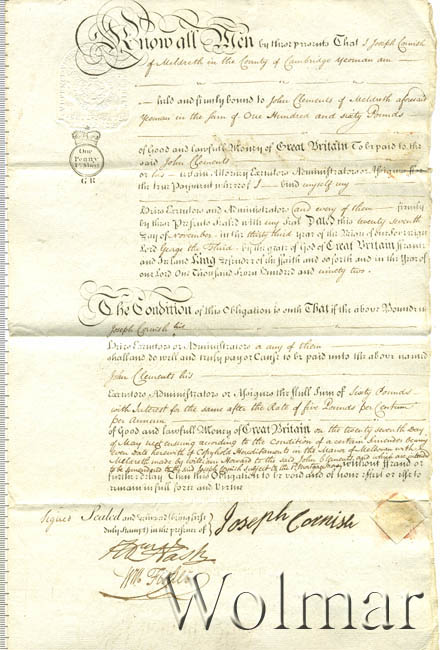 Know all Men by these presents That I Joseph Cornish
of Meldreth in the County of Cambridge Yeoman am
held and firmly bound to John Clements of Meldreth aforesaid
Yeoman in the sum of One Hundred and sixty Pounds
of Good and lawfull Money of Great Britain To be paid to the
said John Clements
or his certain Attorney Executors Administrators or Assigns for
the true Payment whereof I bind myself my
One
Penny
GR
Heirs Executors and Administrators and every of them firmly
by these Presents Sealed with my Seal Dated this twenty seventh
Day of November in the thirty third year of the Reign of our Sovereign
Lord George the Third by the grace of God of Great Britain France
and Ireland King Defender of the Faith and so forth and in the Year of
our Lord One Thousand Seven Hundred and ninety two.
The Condition of this Obligation is such That if the above Bounden
Joseph Cornish his
Heirs Executors or Administrators or any of them
shall and do well and truly pay or Cause to be paid unto the above named
John Clements his
Executors Administrators or Assigns the full Sum of Sixty Pounds
with Interest for the same after the Rate of five Pounds per Centum
per Annum
of Good and lawfull Money of Great Britain on the twenty seventh Day
of May next ensuing according to the Condition of a certain Surrender bearing
even Date herewith of Copyhold Hereditaments in the Manor of
Meldreth made by William to the said John Clements and which are
to be surrendered to the said Joseph Cornish subject to the without fraud or
further delay Then this Obligation to be void and of none effect or else to
remain in full force and Virtue
Signed Sealed and delivered (being first
Duly Stampt) in the presence of
Joseph Cornish
Nash
Wm
Wolmar